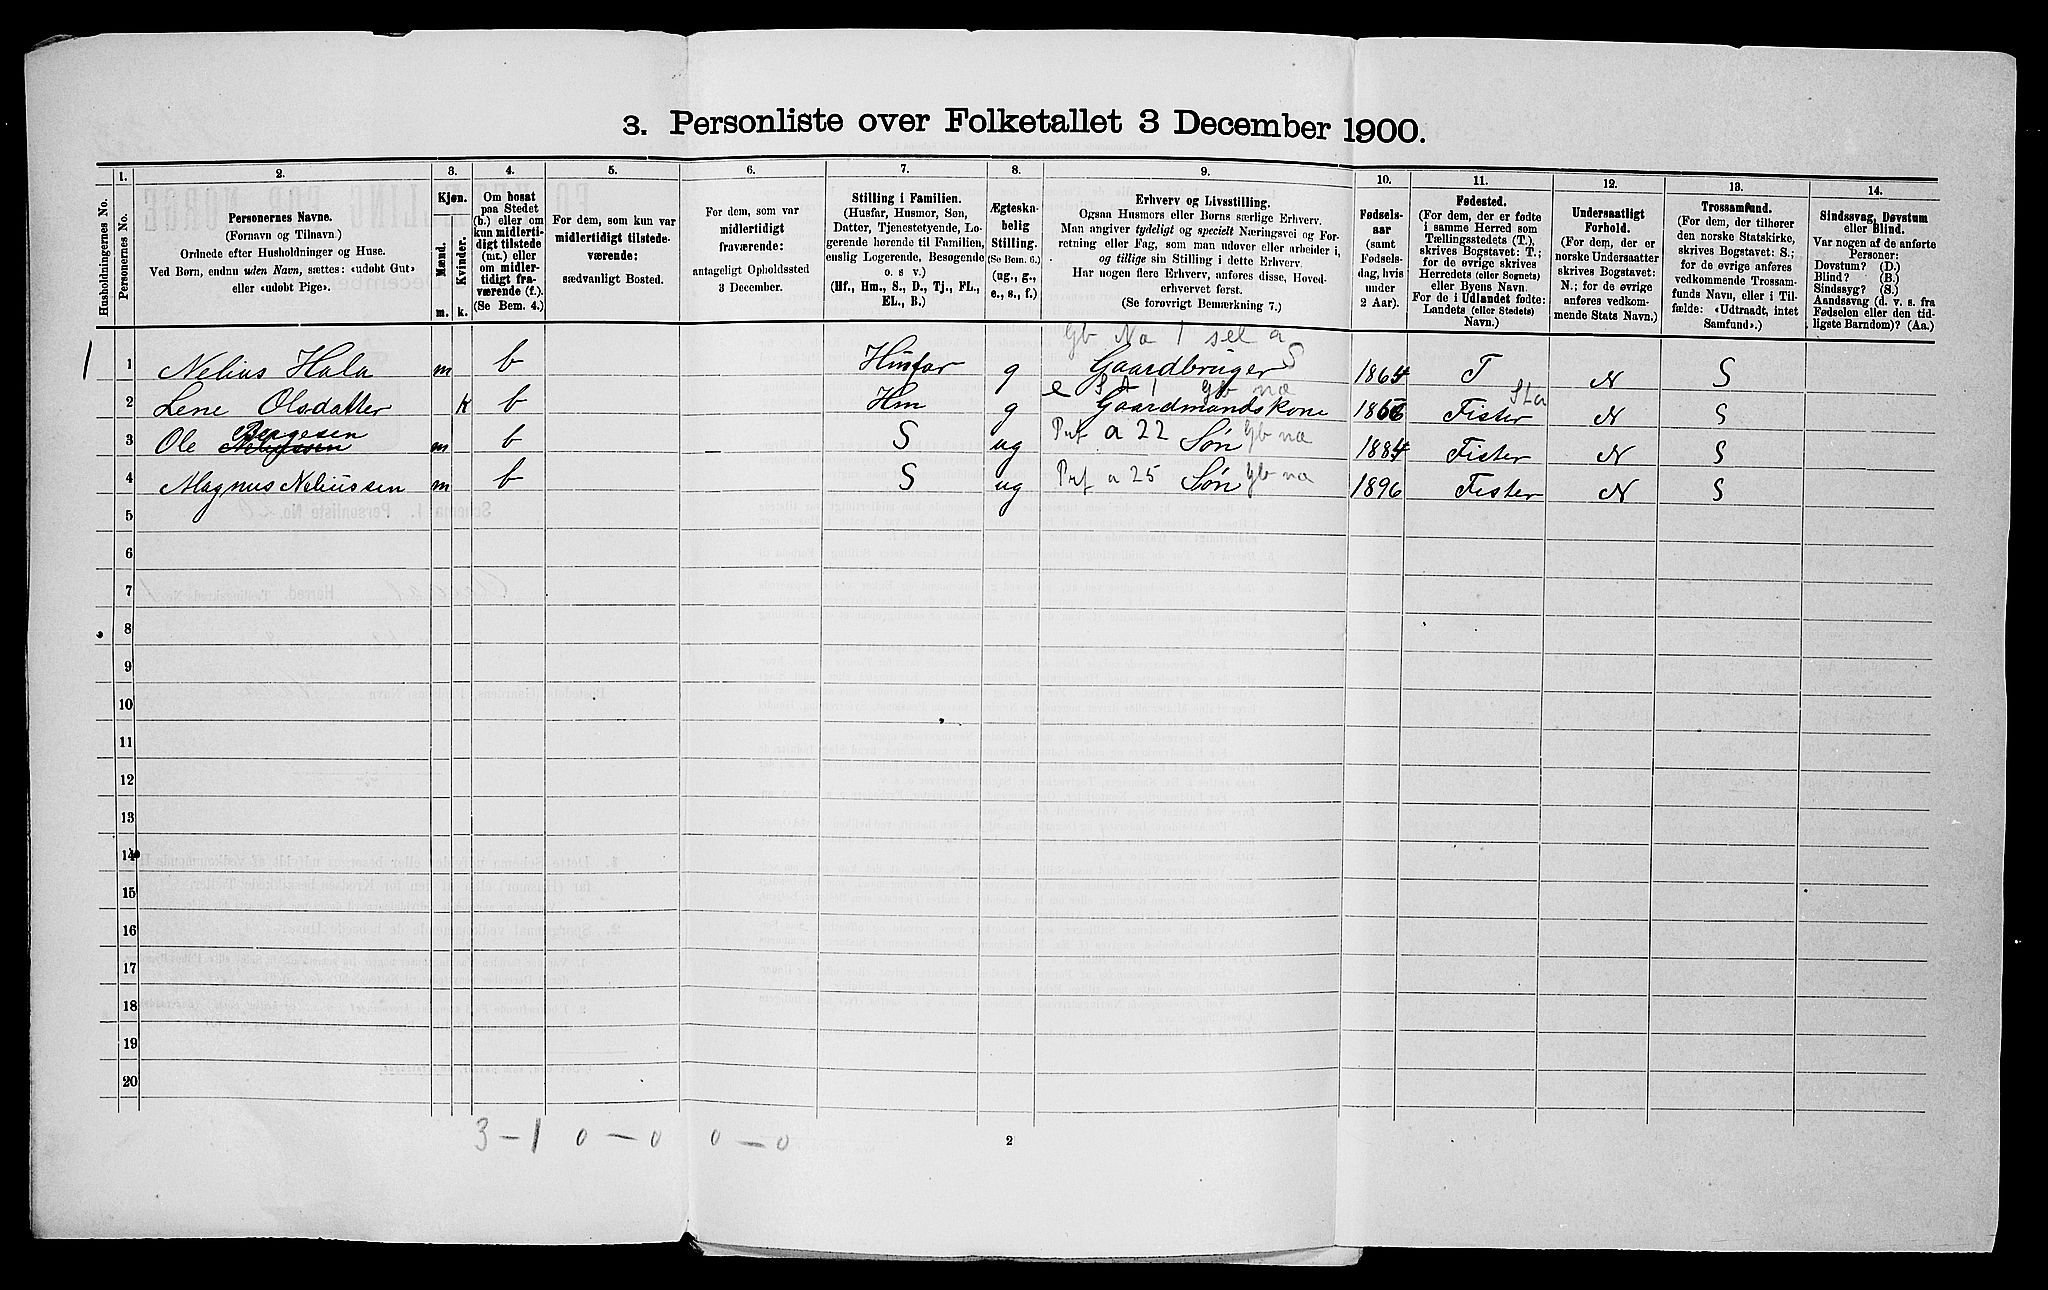 3. Personliste over Folketallet 3 December 1900.
1. 2. 3. 4. 5. 6. 7. 8. 9. 10. 11. 12. 13. 14.
Husholdningernes No.
Personernes No.
Personernes Navne.
(Fornavn og Tilnavn.)
Ordnede efter Husholdninger og Huse.
Ved Børn, endnu uden Navn, sættes: «udøbt Gut»
eller «udøbt Pige».
Kjøn.
Mænd.
Kvinder.
m. k.
Om bosat
paa Stedet
(b.) eller om
kun midlerti-
digt tilstede
(mt.) eller
om midler-
tidigt fra-
værende (f.).
(Se Bem. 4.)
For dem, som kun var
midlertidigt tilstede-
værende:
sædvanligt Bosted.
For dem, som var
midlertidigt
fraværende:
antageligt Opholdssted
3 December.
Stilling i Familien.
(Husfar, Husmor, Søn,
Datter, Tjenestetyende, Lo-
gerende hørende til Familien,
enslig Logerende, Besøgende
o. s v.)
(Hf., Hm., S., D., Tj., FL.,
EL., B.)
Ægteska-
belig
Stilling.
(Se Bem. 6.)
(ug., g.,
e., s., f.)
Erhverv og Livsstilling.
Ogsaa Husmors eller Børns særlige Erhverv.
Man angiver tydeligt og specielt Næringsvei og For-
retning eller Fag, som man udøver eller arbeider i,
og tillige sin Stilling i dette Erhverv.
Har nogen flere Erhverv, anføres disse, Hoved-
erhvervet først.
(Se forøvrigt Bemærkning 7.)
Fødsels-
aar
(samt
Fødsels-
dag, hvis
under
2 Aar).
Fødested.
(For dem, der er fødte
i samme Herred som
Tællingsstedets (T.),
skrives Bogstavet: T.;
for de øvrige skrives
Herredets (eller Sognets)
eller Byens Navn.
For de i Udlandet fødte:
Landets (eller Stedets)
Navn.)
Undersaatligt
Forhold.
(For dem, der er
norske Undersaatter
skrives Bogstavet:
N.; for de øvrige
anføres vedkom-
mende Stats Navn.)
Trossamfund.
(For dem, der tilhører
den norske Statskirke,
skrives Bogstavet: S.;
for de øvrige anføres
vedkommende Trossam-
funds Navn, eller i Til-
fælde: «Udtraadt, intet
Samfund».)
Sindssvag, Døvstum
eller Blind.
Var nogen af de anførte
Personer:
Døvstum? (D.)
Blind? (B.)
Sindssyg? (S.)
Aandssvag (d. v. s. fra
Fødselen eller den tid-
ligste Barndom)? (Aa.)
Gb No 1 sel a
1 1 Nelius Hala m b Husfar g Gaardbruger S 1864 T N S
2 Lene Olsdatter K b Hm g Gaardmandskone 1866 Fister Sta N S
3 Ole Bergesen m b S ug Prf a 22 Søn Gb na 1884 Fister N S
4 Magnus Neliussen m b S ug Prf a 25 Søn Gb na 1896 Fister N S
5
6
7
8
9
10
11
12
13
14
15
16
17
18
19
20
3 - 1 0 - 0 0 - 0
2